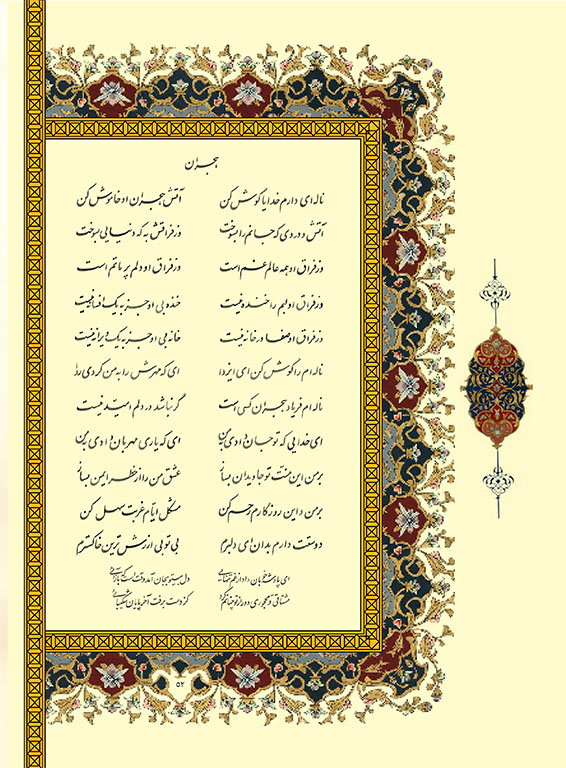 هجران
ناله ای دارم خدایا گوش کن آتش هجران او خاموش کن
آتش و دردی که جانم را بسوخت وز فراقش به که دنیایی بسوخت
وز فراق او همه عالم غم است وز فراق او دلم پر ماتم است
وز فراق او لبم را خنده نیست خنده بی او جز به یک افسانه نیست
وز فراق او صفا در خانه نیست خانه بی او جز به یک ویرانه نیست
ناله ام را گوش کن ای ایزدا ای که مهرش را به من کردی روا
ناله ام فریاد هجران کسی است گر نباشد در دلم امید نیست
ای خدایی که تو جان دادی به من ای که یاری مهربان دادی به من
بر من این منت تو جاویدان بسا عشق من را از خطر ایمن بسا
بر من و این روزگارم رحم کن مشکل ایام غربت سهل کن
دوستت دارم بدان ای دلبرم بی تو بی ارزش ترین خاکسترم
ای پادشه خوبان داد از غم تنهایی دل بی تو بجان آمد وقت است که بازآیی
مشتاقی و مهجوری دور از تو چنانم کرد کز دست برفت آخر پایان شکیبایی
۵۲